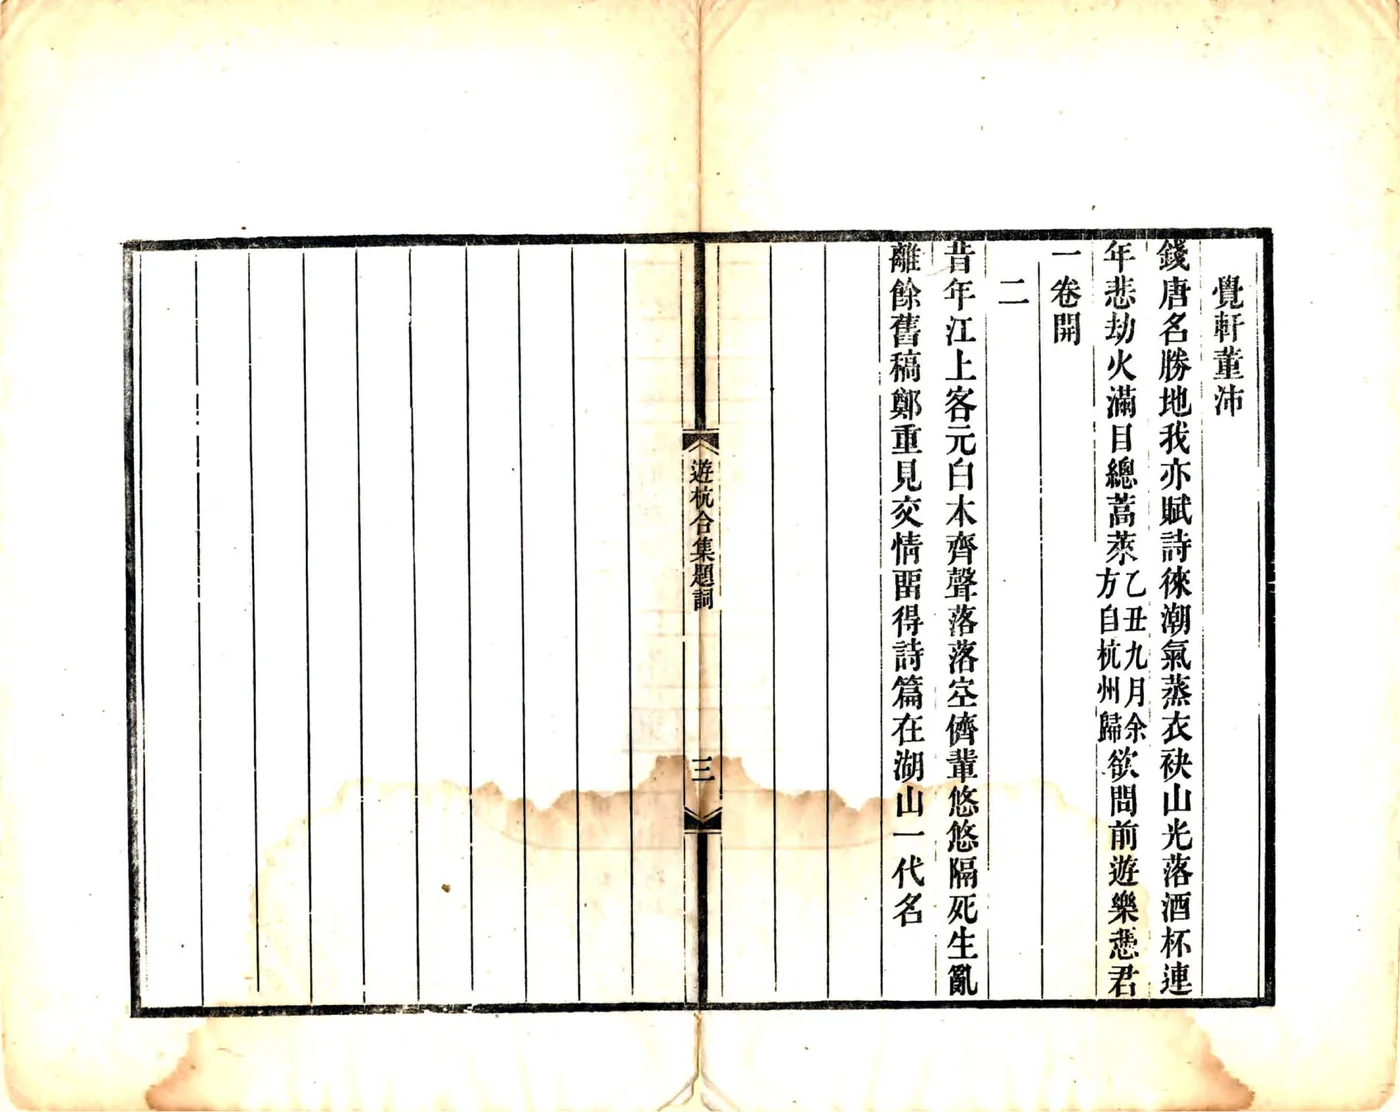 覺軒董沛
錢唐名勝地我亦賦詩徠潮氣蒸衣袂山光落酒杯連
年悲劫火滿目總蒿萊乙丑九月余方自杭州歸欲問前遊樂慿君
一卷開
二
昔年江上客元白木齊聲落落空儕輩悠悠隔死生亂
離餘舊稿鄭重見交情畱得詩篇在湖山一代名
遊杭合集題詞
三